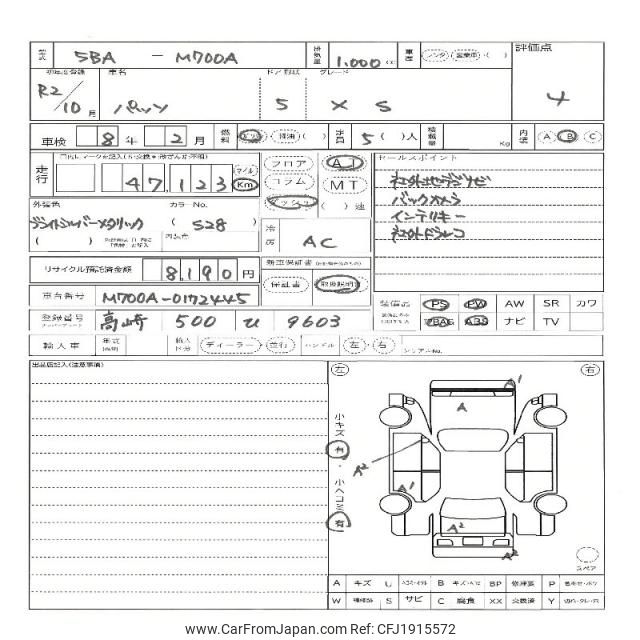 型式 5BA - M700A 排気量 1,000 cc 車歴 レンタ 営業車 ( ) 評価点
初年度登録 車名 ドア 形状 グレード
R2/10月 パッソ 5 X S 4
車検 8年 2月 燃料 ガソリン 軽油 ( ) 定員 5( )人 積載量 Kg 内装 A B C
走行 47,123 マイル Km
フロア AT
コラム MT
ダッシュ ( )速
セールスポイント
社外ナビ
バックカメラ
インテリキー
社外ドラレコ
外装色 カラーNo.
ブライトシルバーメタリック ( S28 )
冷房 AC
リサイクル預託済金額 8,190円
新車保証書
保証書 取扱説明書
車台番号 M700A-0172445
装備品 PS PW AW SR カワ
ABAG ABS ナビ TV
登録番号 高崎 500 む 9603
輸入車 年式 輸入区分 ディーラー・並行 ハンドル 左・右 シリアルNo.
出品店記入(注意事項)
左 右
小キズ 有・小ヘコミ 有
A1
A
A2
A1
A2
A2
スペア
A キズ U B キズ・ヘコ BP 修理跡 P
W 補修跡 S サビ C 腐食 XX 交換済 Y
www.CarFromJapan.com - CFJ1915572